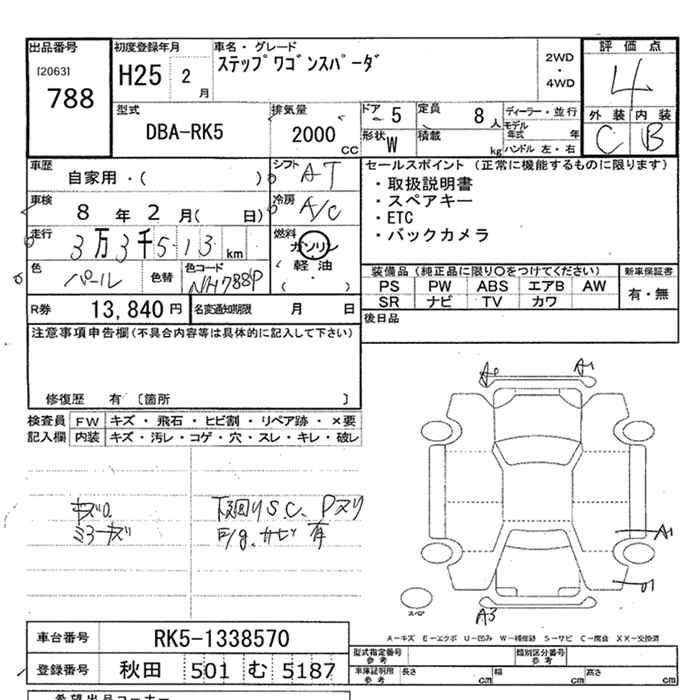 出品番号
[2063]
788
初度登録年月
H25 2 月
車名・グレード
ステップワゴンスパーダ
2WD
・
4WD
評価点
4
外装 内装
C B
型式
DBA-RK5
排気量
2000 CC
ドア 5
定員 8 人
形状 W
積載 kg
ディーラー・並行
モデル年式 年
ハンドル 左・右
車歴
自家用・( )
シフト AT
車検
8 年 2 月( 日)
冷房 A/C
走行
3万3千513 km
燃料
ガソリン
軽油
( ・ )
色
パール
色替
色コード
NH788P
R券 13,840 円
名変通知期限 月 日
セールスポイント (正常に機能するものに限ります)
・取扱説明書
・スペアキー
・ETC
・バックカメラ
装備品(純正品に限り○をつけてください)
PS PW ABS エアB AW
SR ナビ TV カワ
新車保証書
有・無
後日品
注意事項申告欄(不具合内容等は具体的に記入して下さい)
修復歴 有 〔箇所 〕
検査員記入欄
FW キズ・飛石・ヒビ割・リペア跡・×要
内装 キズ・汚レ・コゲ・穴・スレ・キレ・破レ
ミラーキズ
下廻りSC、Pヌリ
F/g、サビ有
A1
A1
A3
スペア
A-キズ E-エクボ U-凹み W-補修跡 S-サビ C-腐食 XX-交換済
車台番号 RK5-1338570
登録番号 秋田 501 む 5187
型式指定番号
参考
類別区分番号
参考
車庫証明用
参考
長さ cm 幅 cm 高さ cm
希望出品コーナー